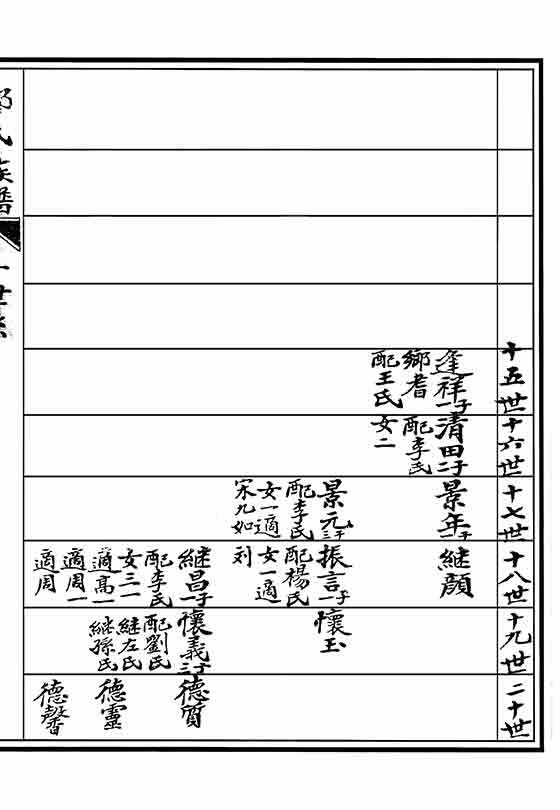 十五世
十六世
十七世
十八世
十九世
二十世
逢祥一子
鄉耆
配王氏
清田二子
配李氏
女二
景年一子
景元三子
配李氏
女一適
宋九如
繼顏
振言一子
配楊氏
女一適
刘
継昌一子
配李氏
女三一
適高一
適周一
適周
懷玉
懷義三子
配劉氏
継左氏
継孫氏
德質
德靈
德馨
氏族譜
十世系